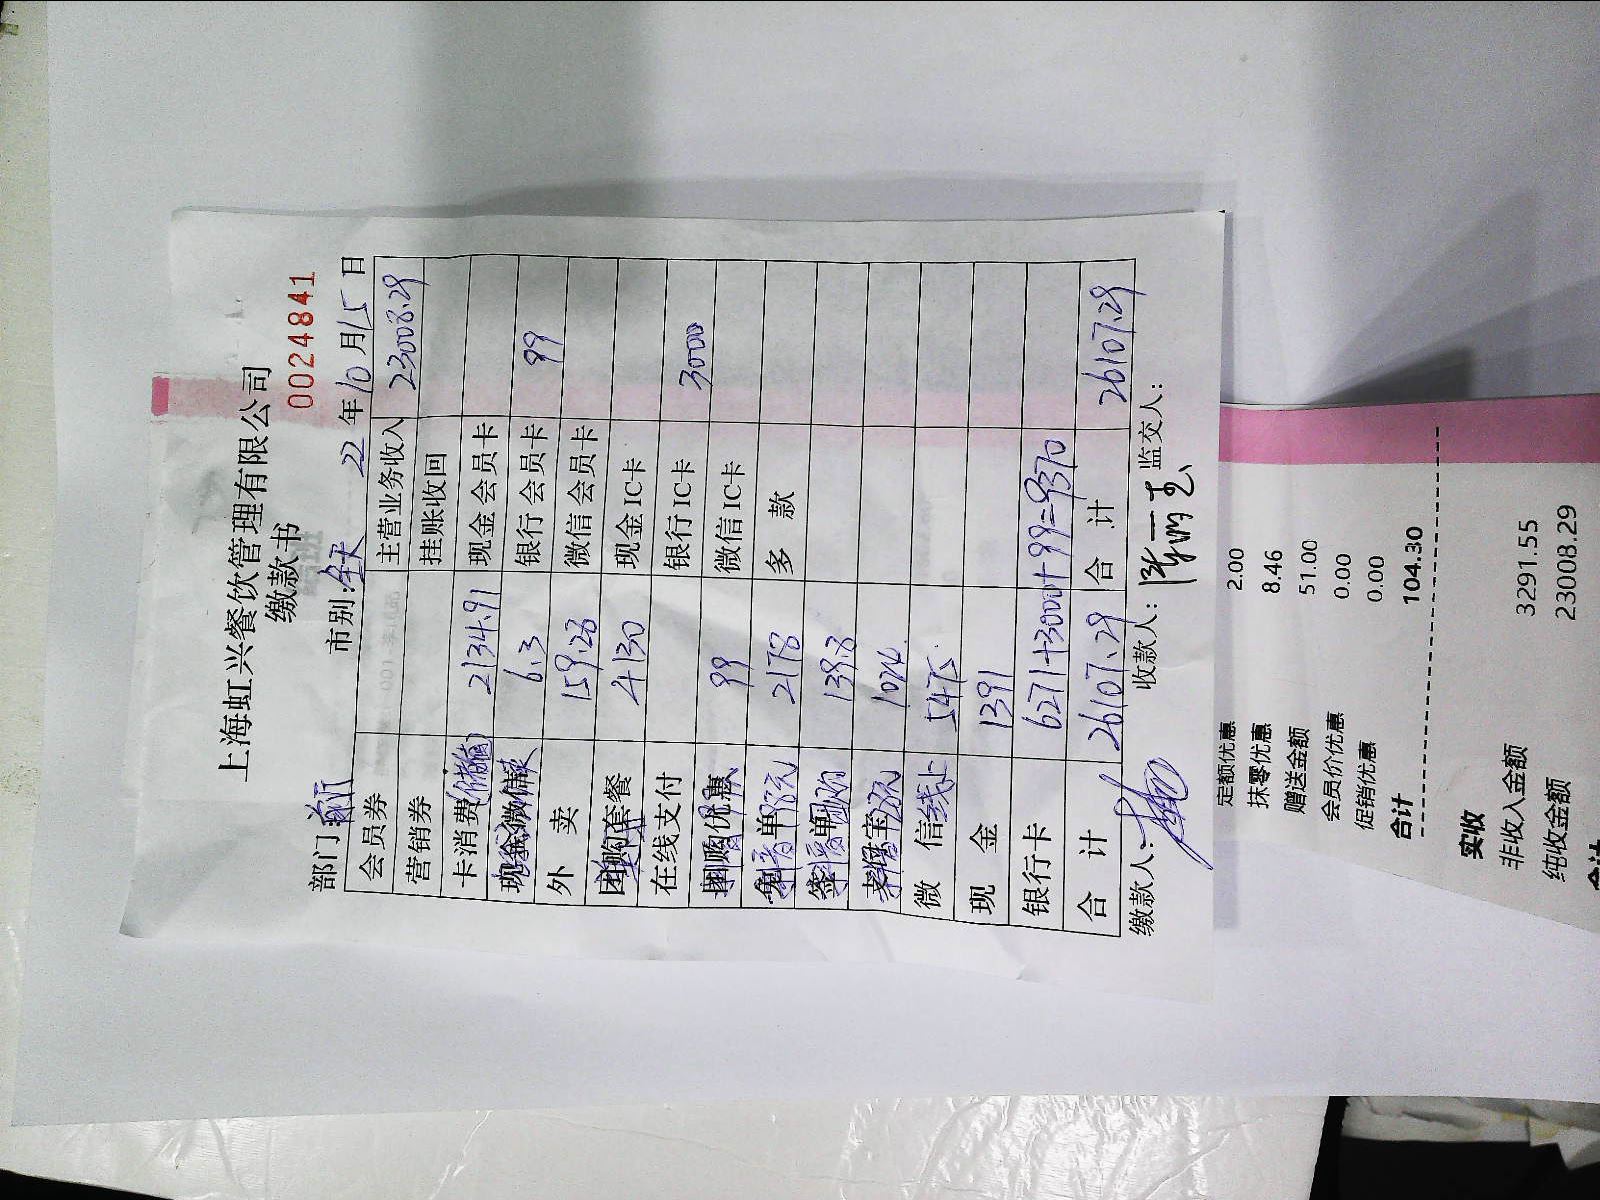 上海虹兴餐饮管理有限公司
缴款书
0024841
部门: 市别:全天 22年10月15日
会员券 主营业务收入 23008.29
营销券 挂账收回
卡消费(储值) 2134.91 现金会员卡
6.3 银行会员卡 99
外 卖 159.28 微信会员卡
团购套餐 4130 现金IC卡
在线支付 银行IC卡 3000
团购优惠 99 微信IC卡
免单 2178 多 款
签单 139.8
支付宝 1024.
微 信 线上 5475
现 金 1391
银行卡 6271+3000+99=9370
合 计 26107.29 合 计 26107.29
缴款人: 收款人: 监交人:
定额优惠 2.00
抹零优惠 8.46
赠送金额 51.00
会员价优惠 0.00
促销优惠 0.00
合计 104.30
实收
非收入金额 3291.55
纯收金额 23008.29
合计